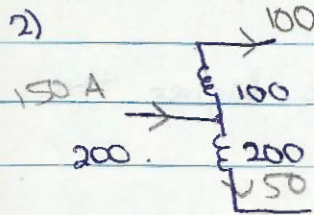 2)
100
150 A
100
200.
200
50